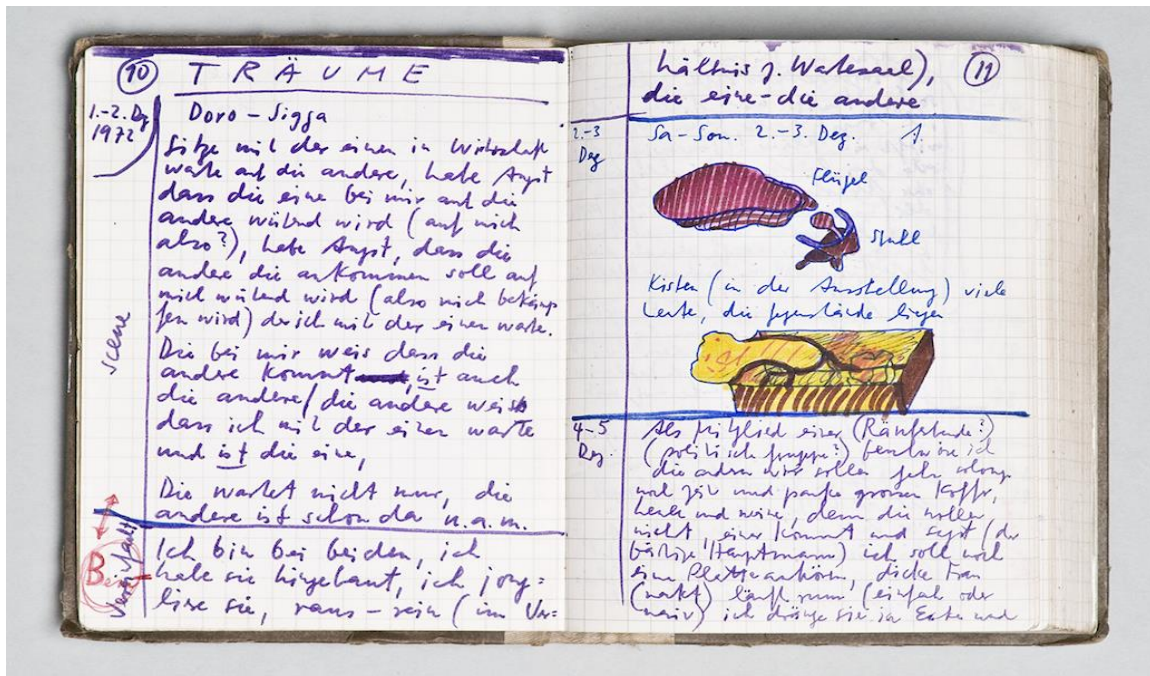 10
TRÄUME
1.-2. Dez
1972
Doro - Sigga
Sitze mit der einen in Wirtschaft
warte auf die andere, habe Angst
dass die eine bei mir auf die
andere wütend wird (auf mich
also?), habe Angst, dass die
andere die ankommen soll auf
mich wütend wird (also mich bekämp
fen wird) der ich mit der einen warte.
scene
Die bei mir weis dass die
andere kommt ist auch
die andere / die andere weis
dass ich mit der einen warte
und ist die eine,
Die wartet nicht nur, die
andere ist schon da u.a.m.
B
Ich bin bei beiden, ich
habe sie hingebaut, ich jong=
liere sie, raus - rein (im Ver=
hältnis z. Wartesaal),
die eine - die andere
11
2.-3
Dez
Sa - Son. 2.-3. Dez. 1.
Flügel
Stuhl
Kisten (in der Ausstellung) viele
Leute, die gegenstände liegen
4-5
Dez.
Als Mitglied einer (Räuberbande?)
(politisch gruppe?) ich
die andern wir sollen
und und packe grossen Koffr,
heule und weine, denn die wollen
nicht, einer kommt und sagt (der
bärtige Hauptmann) ich soll noch
eine Platte anhörn, dicke Frau
(nakt) läuft rum (einfach oder
naiv) ich dränge sie in und